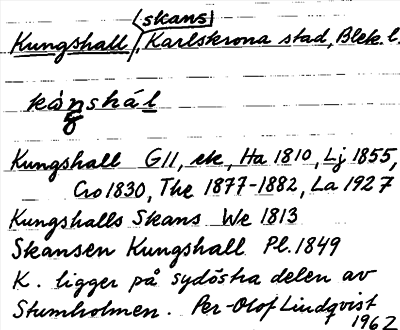 skans
Kungshall, Karlskrona stad, Blek. l.
kòŋshál
Kungshall GII, ek, Ha 1810, Lj 1855,
Cro 1830, The 1877-1882, La 1927
Kungshalls Skans We 1813
Skansen Kungshall Pl. 1849
K. ligger på sydöstra delen av
Stumholmen. Per-Olof Lindqvist
1962